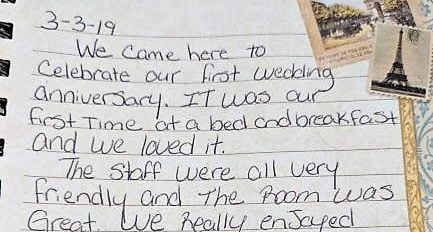 3-3-19
We Came here to
Celebrate our first wedding
anniversary. IT was our
first Time at a bed and breakfast
and we loved it.
The Staff were all very
friendly and The Room was
Great. We Really enjoyed